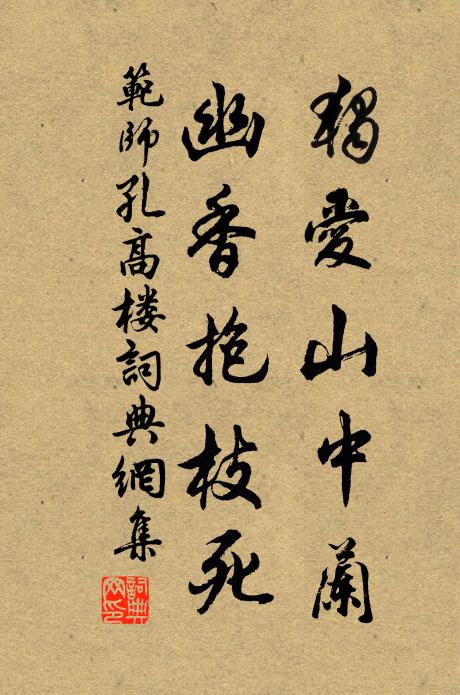 獨愛山中蘭
幽香抱枝死
範師孔高樓詞典網集
詞典網印